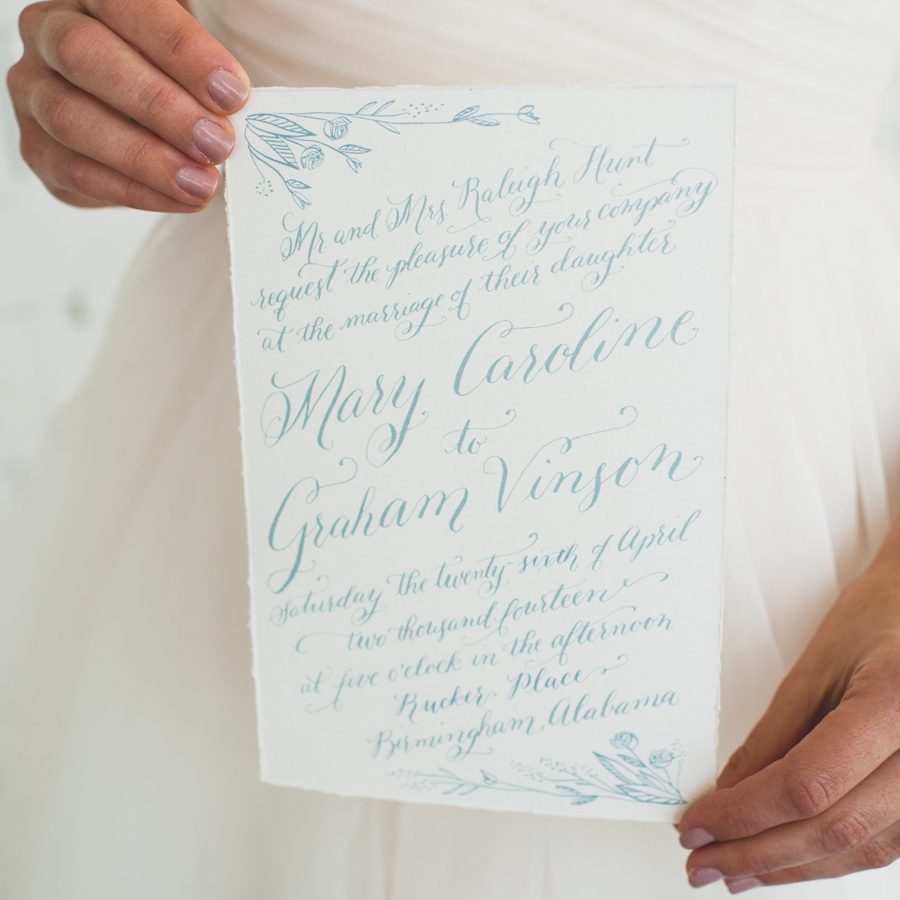 Mr and Mrs. Raleigh Hunt
request the pleasure of your company
at the marriage of their daughter
Mary Caroline
to
Graham Vinson
Saturday the twenty-sixth of April
two thousand fourteen
at five o'clock in the afternoon
Rucker Place
Birmingham, Alabama